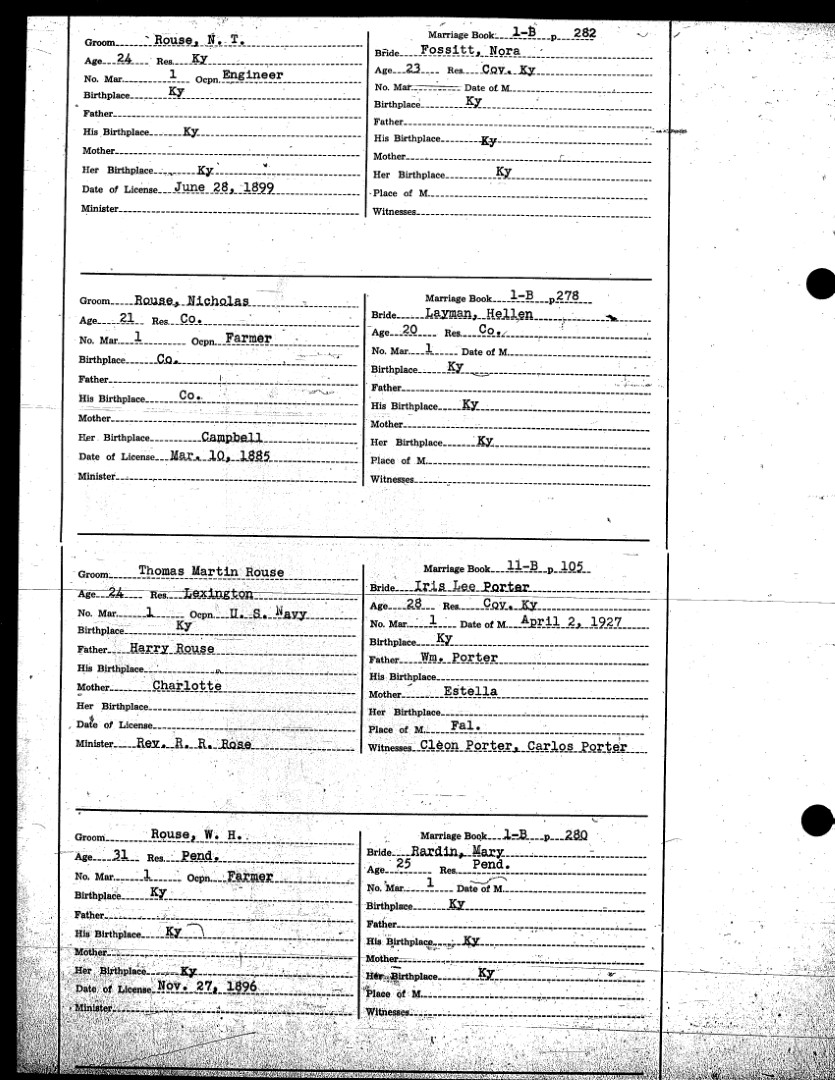 Groom Rouse, N. T.
Age 24 Res Ky
No. Mar. 1 Ocpn. Engineer
Birthplace Ky
Father
His Birthplace Ky
Mother
Her Birthplace Ky
Date of License June 28, 1899
Minister
Marriage Book 1-B p. 282
Bride Fossitt, Nora
Age 23 Res. Cov. Ky
No. Mar. Date of M.
Birthplace Ky
Father
His Birthplace Ky
Mother
Her Birthplace Ky
Place of M.
Witnesses
Groom Rouse, Nicholas
Age 21 Res. Co.
No. Mar. 1 Ocpn. Farmer
Birthplace Co.
Father
His Birthplace Co.
Mother
Her Birthplace Campbell
Date of License Mar. 10, 1885
Minister
Marriage Book 1-B p. 278
Bride Layman, Hellen
Age 20 Res. Co.
No. Mar. 1 Date of M.
Birthplace Ky
Father
His Birthplace Ky
Mother
Her Birthplace Ky
Place of M.
Witnesses
Groom Thomas Martin Rouse
Age 24 Res. Lexington
No. Mar. 1 Ocpn. U. S. Navy
Birthplace Ky
Father Harry Rouse
His Birthplace
Mother Charlotte
Her Birthplace
Date of License
Minister Rev. R. R. Rose
Marriage Book 11-B p. 105
Bride Iris Lee Porter
Age 28 Res. Cov. Ky
No. Mar. 1 Date of M. April 2, 1927
Birthplace Ky
Father Wm. Porter
His Birthplace
Mother Estella
Her Birthplace
Place of M. Fal.
Witnesses Cleon Porter, Carlos Porter
Groom Rouse, W. H.
Age 31 Res. Pend.
No. Mar. 1 Ocpn. Farmer
Birthplace Ky
Father
His Birthplace Ky
Mother
Her Birthplace Ky
Date of License Nov. 27, 1896
Minister
Marriage Book 1-B p. 280
Bride Rardin, Mary
Age 25 Res. Pend.
No. Mar. 1 Date of M.
Birthplace Ky
Father
His Birthplace Ky
Mother
Her Birthplace Ky
Place of M.
Witnesses